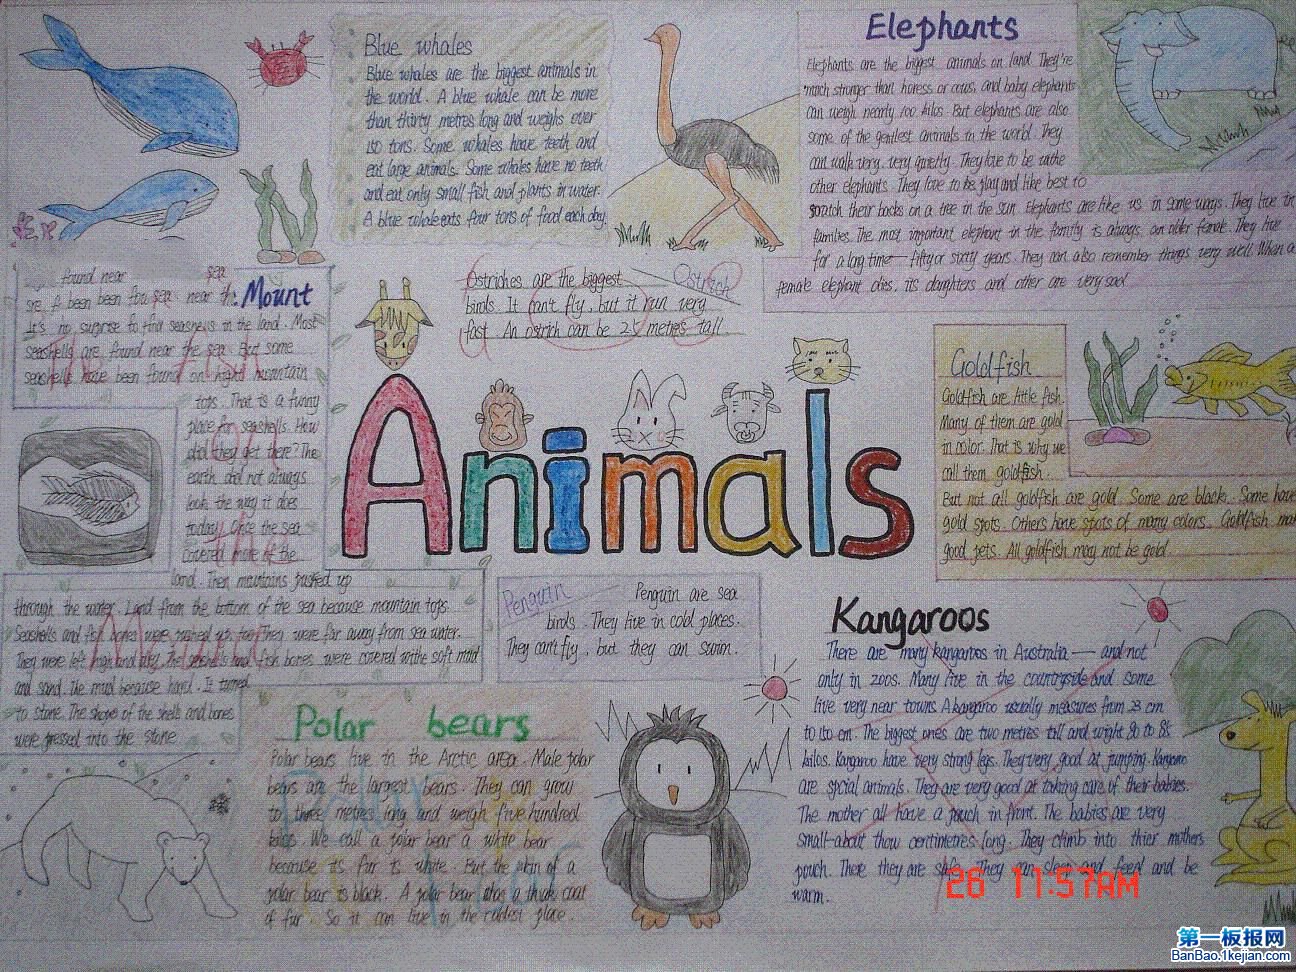 Blue whales
Blue whales are the biggest animals in
the world. A blue whale can be more
than thirty metres long and weighs over
150 tons. Some whales have teeth and
eat large animals. Some whales have no teeth
and eat only small fish and plants in water.
A blue whale eats four tons of food each day.
Elephants
Elephants are the biggest animals on land. They're
much stronger than horess or cows, and baby elephants
can weigh nearly 100 kilos. But elephants are also
some of the gentlest animals in the world. They
can walk very, very quietly. They love to be withe
other elephants. They love to be play and like best to
scratch their backs on a tree in the sun. Elephants are like us in some ways. They live in
families. The most important elephant in the family is always an older female. They live
for a long time—fifty or sixty years. They can also remember things very well. When a
female elephant dies, its daughters and other are very sad
Mount
found near sea
It's no surprise to find seashells in the land. Most
seashells are found near the sea. But some
seashells have been found on hight mountain
tops. That is a funny
place for seashells. How
did they get there? The
earth did not always
look the way it does
today. Once the sea
covered more of the
land. Then mountains pushed up
through the water. Land from the bottom of the sea because mountain tops.
Seashells and fish bones were pushed up, too. They were far away from sea water.
They were left high and dry. The seashells and fish bones were covered withe soft mud
and sand. The mud because hard. It turned
to stone. The shape of the shells and bones
were pressed into the stone
Ostrich
Ostriches are the biggest
birds. It can't fly, but it run very
fast. An ostrich can be 2.5 metres tall.
Animals
Goldfish
Goldfish are little fish.
Many of them are gold
in color. That is why we
call them goldfish.
But not all goldfish are gold. Some are black. Some have
gold spots. Others have spots of many colors. Goldfish mak
good pets. All goldfish may not be gold.
Penguin
Penguin are sea
birds. They live in cold places.
They can't fly, but they can swim.
Kangaroos
There are many kangaroos in Australia — and not
only in zoos. Many live in the countryside and some
live very near towns. A kangaroo usually measures from 23 cm
to 150 cm. The biggest ones are two metres tall and wight 80 to 85
kilos. Kangaroo have very strong legs. They very good at jumping. Kangaroo
are spcial animals. They are very good at taking care of their babies.
The mother all have a pouch in front. The babies are very
small-about thow centimetres long. They climb into thier mothers
pouch. There they are safe. They can sleep and feed and be
warm.
Polar bears
Polar bears live in the Arctic area. Male polar
bears are the largest bears. They can grow
to three metres long and weigh five hundred
kilos. We call a polar bear a white bear
because its fur is white. But the skin of a
polar bear is black. A polar bear has a thick coat
of fur. So it can live in the coldest place.
26 11:57AM
第一板报网
BanBao.1kejian.com